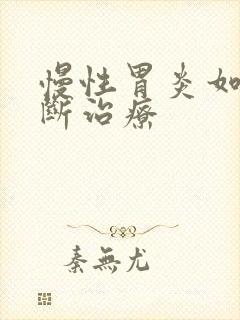 慢性胃炎如
斷治療
秦無尤